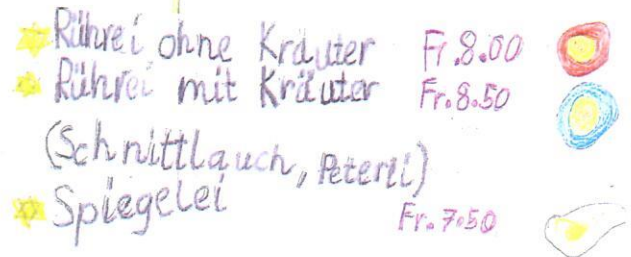 Rührei ohne Kräuter Fr.8.00
Rührei mit Kräuter Fr.8.50
(Schnittlauch, Peterli)
Spiegelei Fr.7.50